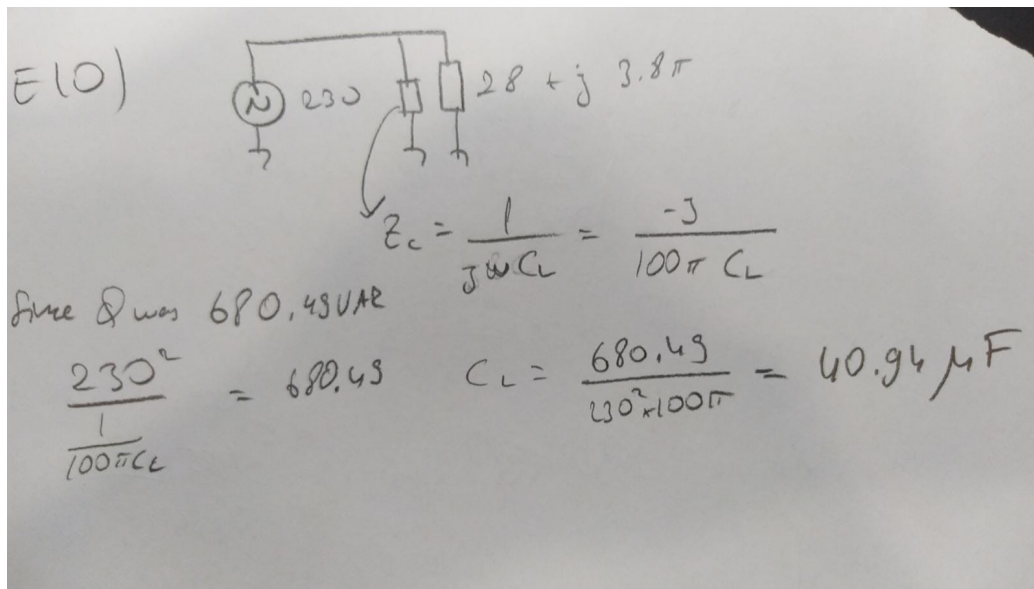 E(0)
230
28 + j 3.8π
Zc = 1 / jωCL = -J / 100π CL
Since Q was 680.49 VAR
230² / (1 / 100πCL) = 680.49 CL = 680.49 / 230²×100π = 40.94 μF